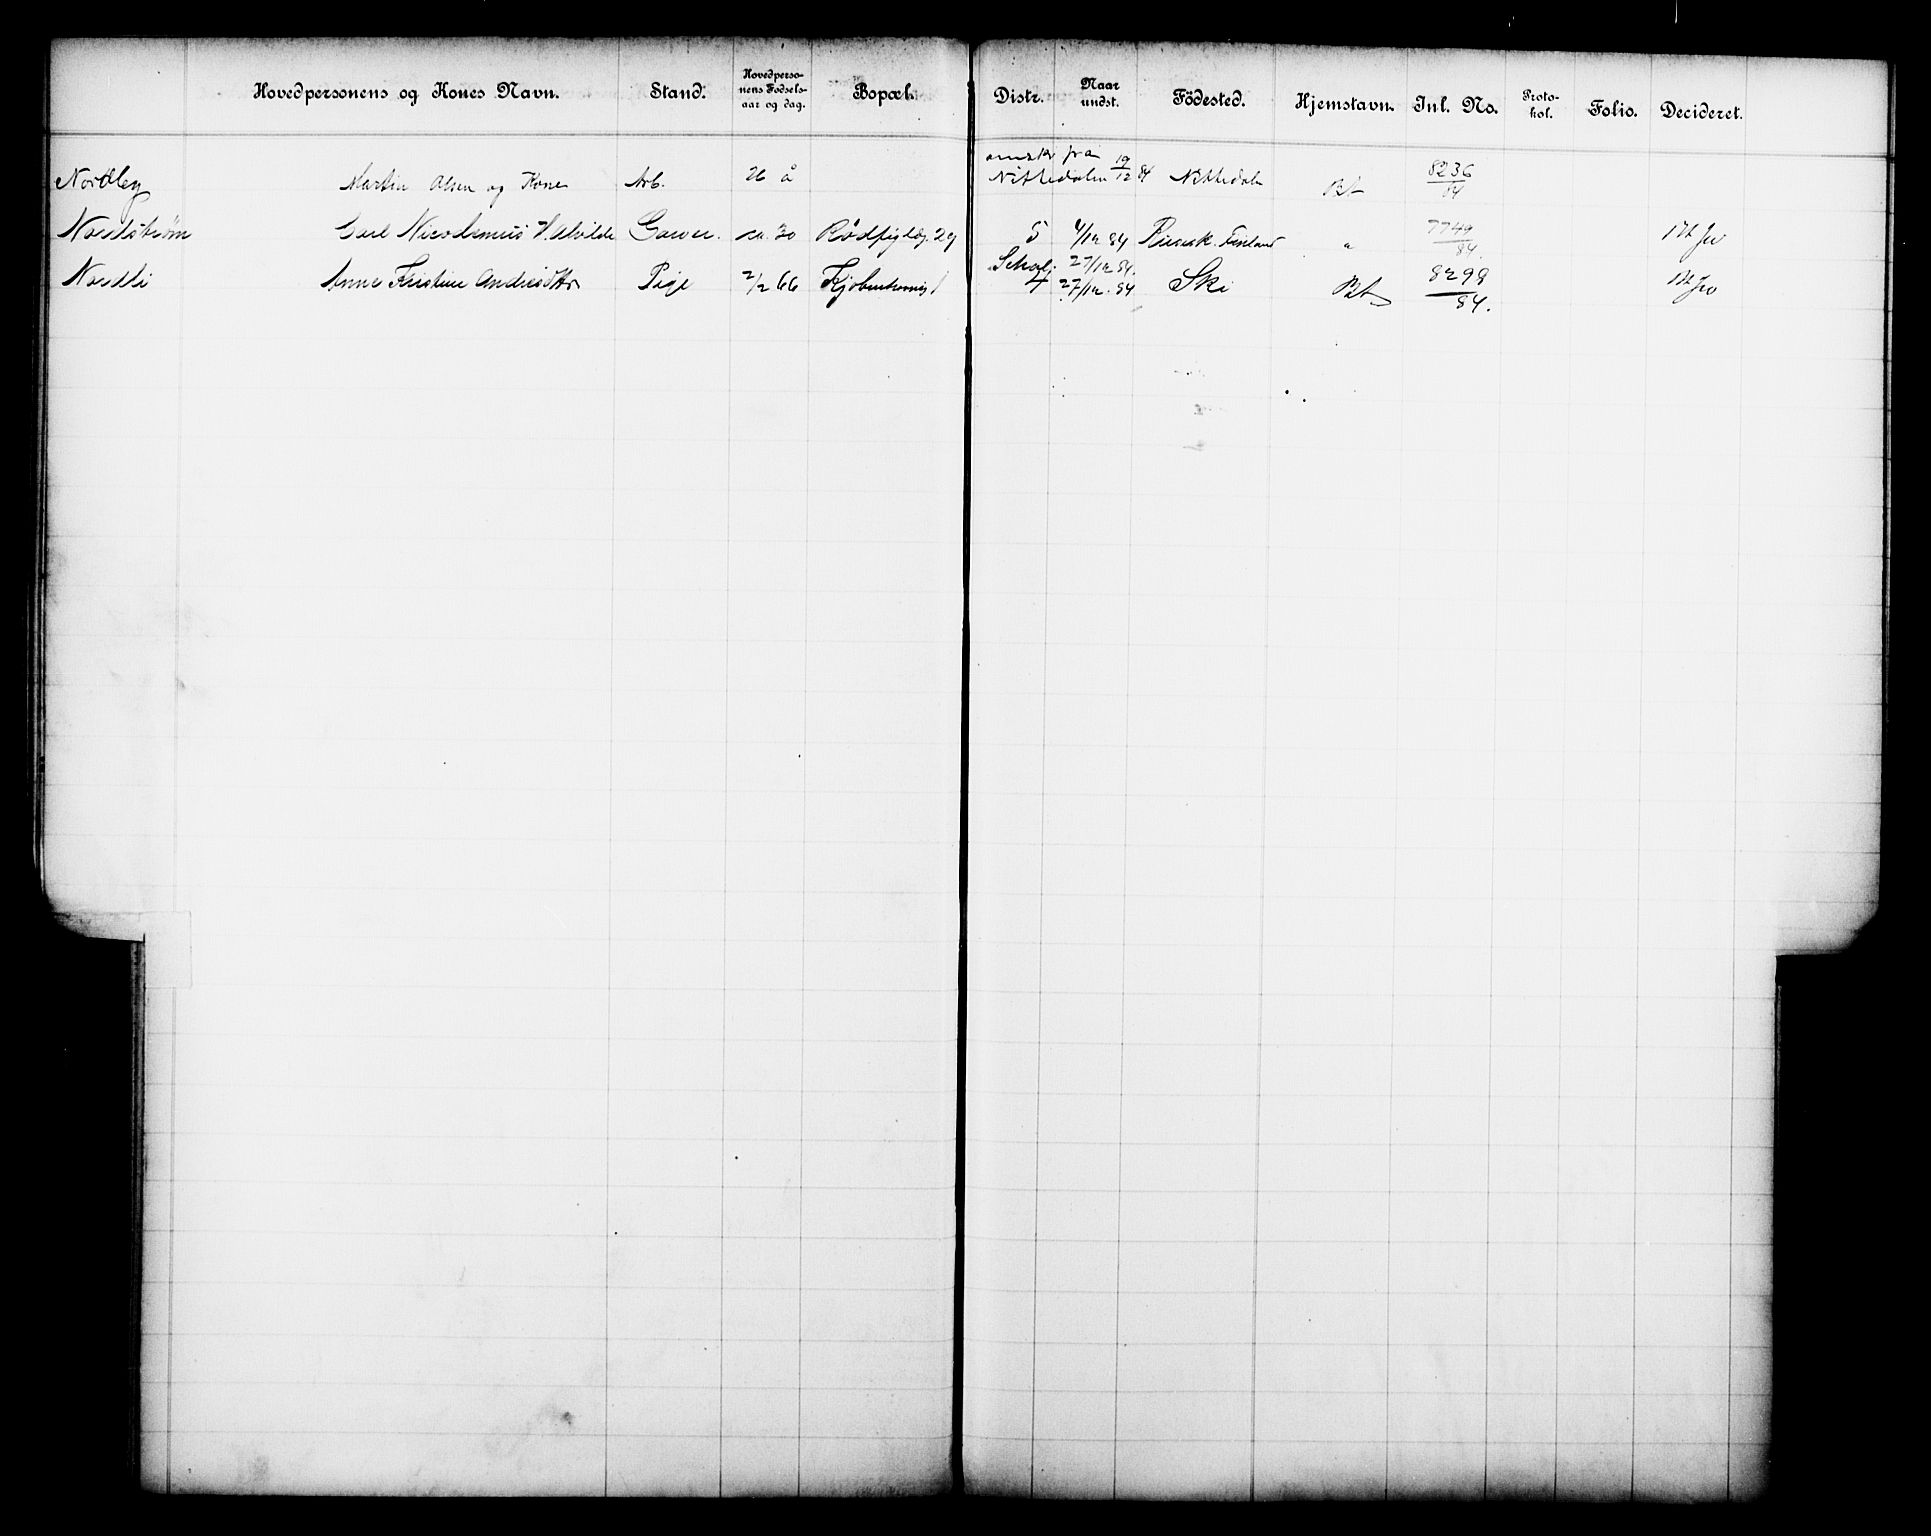 Hovedpersonens og Kones Navn. Stand. Hovedperso-nens Fødsels-aar og dag. Bopæl. Distr. Naar undst. Födested. Hjemstavn. Inl. No. Proto-kol. Folio. Decideret.
Nordby Martin Olsen og Kone Arb. 26 å omskr fra Nittedalen 19/12 84 Nittedalen 8236/84
Nordstrøm Carl Nicodemus Garver. ca. 30 Rødfyldg. 29 5 4/12 84 Finland " 7749/84.
Nordli Anne Kristine Pige 2/2 66 Kjøbenhavnsg 1 4 27/12 84. 27/12. 84 Ski 8298/84.